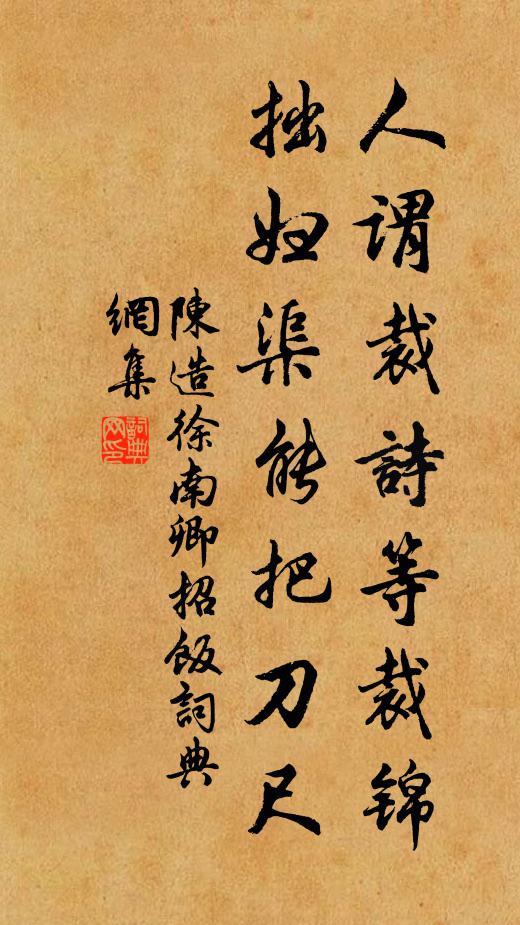 人謂裁詩等裁錦
拙婦渠能把刀尺
陳造徐南卿招飯詞典
網集
詞典
网印